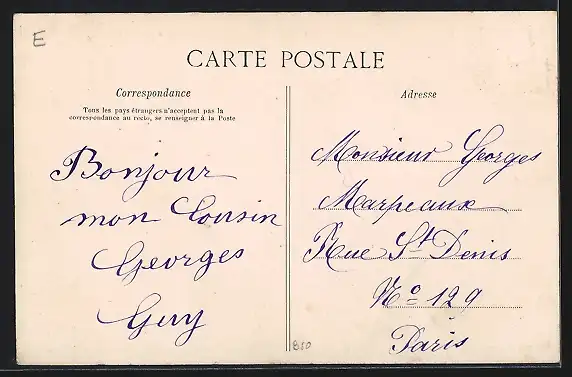 E
CARTE POSTALE
Correspondance
Tous les pays étrangers n'acceptent pas la
correspondance au recto, se renseigner à la Poste
Bonjour
mon Cousin
Georges
Guy
Adresse
Monsieur Georges
Marpeaux
Rue St Denis
No 129
Paris